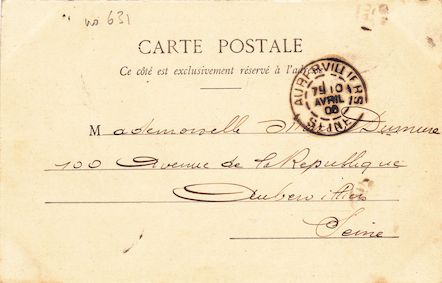 no 631
CARTE POSTALE
Ce côté est exclusivement réservé à l'adresse
AUBERVILLIERS
7E 10
AVRIL
06
SEINE
Mademoiselle Dumeure
100 Avenue de la Republique
Aubervilliers
Seine